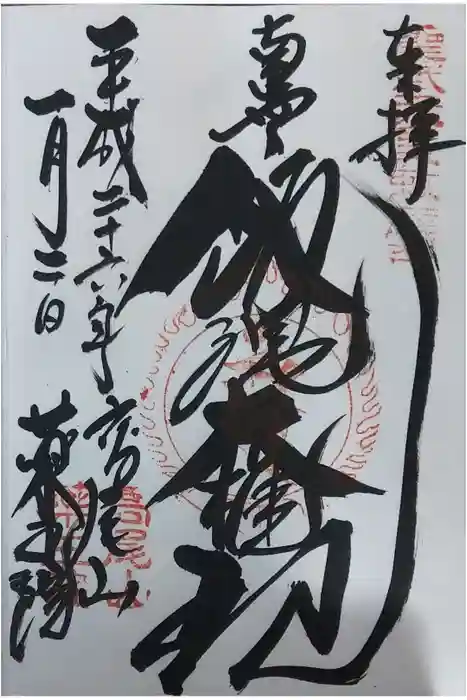 奉拝
南無
飯縄大権現
平成二十六年
一月二日
高尾山
薬王院